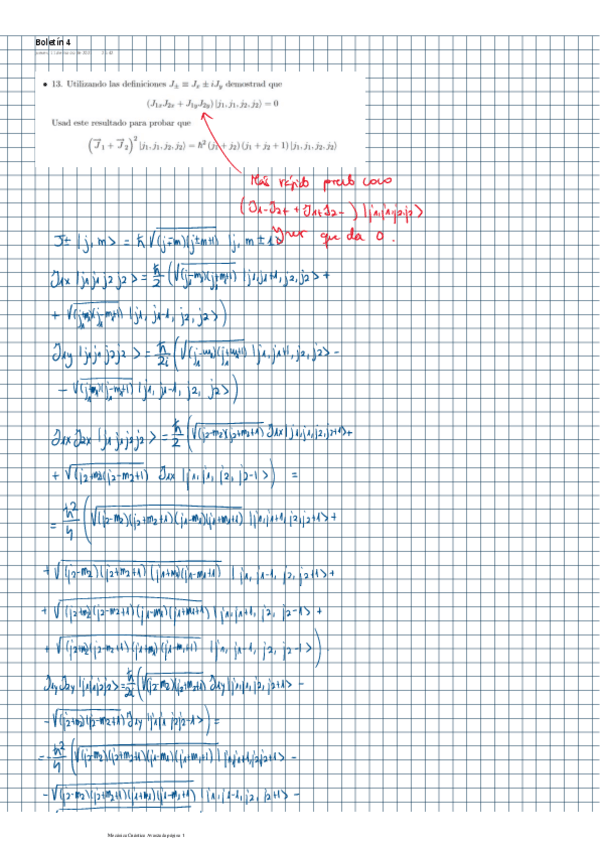 Boletín 4
• 13. Utilizando las definiciones J± ≡ Jₓ ± iJᵧ demostrad que
(J₁ₓJ₂ₓ + J₁ᵧJ₂ᵧ) |j₁, j₁, j₂, j₂⟩ = 0
Usad este resultado para probar que
(J⃗₁ + J⃗₂)² |j₁, j₁, j₂, j₂⟩ = ħ² (j₁ + j₂) (j₁ + j₂ + 1) |j₁, j₁, j₂, j₂⟩
Más rápido
(J1-J2+ + J1+J2-) |j1,j1,j2,j2>
que da 0.
J± |j, m> = ħ √(j∓m)(j±m+1) |j, m±1>
J1x |j1 j1 j2 j2> = ħ/2 (√(j1-m1)(j1+m1+1) |j1,j1+1,j2,j2> +
+ √(j1+m1)(j1-m1+1) |j1, j1-1, j2, j2>)
J1y |j1 j1 j2 j2> = ħ/2i (√(j1-m1)(j1+m1+1) |j1,j1+1,j2,j2> -
- √(j1+m1)(j1-m1+1) |j1, j1-1, j2, j2>)
J1x J2x |j1 j1 j2 j2> = ħ/2 (√(j2-m2)(j2+m2+1) J1x |j1,j1,j2,j2+1> +
+ √(j2+m2)(j2-m2+1) J1x |j1, j1, j2, j2-1>) =
= ħ²/4 (√(j2-m2)(j2+m2+1)(j1-m1)(j1+m1+1) |j1,j1+1,j2,j2+1> +
+ √(j2-m2)(j2+m2+1)(j1+m1)(j1-m1+1) |j1, j1-1, j2, j2+1> +
+ √(j2+m2)(j2-m2+1)(j1-m1)(j1+m1+1) |j1,j1+1, j2, j2-1> +
+ √(j2+m2)(j2-m2+1)(j1+m1)(j1-m1+1) |j1, j1-1, j2, j2-1>)
J1y J2y |j1 j1 j2 j2> = ħ/2i (√(j2-m2)(j2+m2+1) J1y |j1,j1,j2,j2+1> -
- √(j2+m2)(j2-m2+1) J1y |j1 j1 j2 j2-1>) =
= -ħ²/4 (√(j2-m2)(j2+m2+1)(j1-m1)(j1+m1+1) |j1,j1+1,j2,j2+1> -
- √(j2-m2)(j2+m2+1)(j1+m1)(j1-m1+1) |j1, j1-1, j2, j2+1> -
Mecánica Cuántica Avanzada página 1